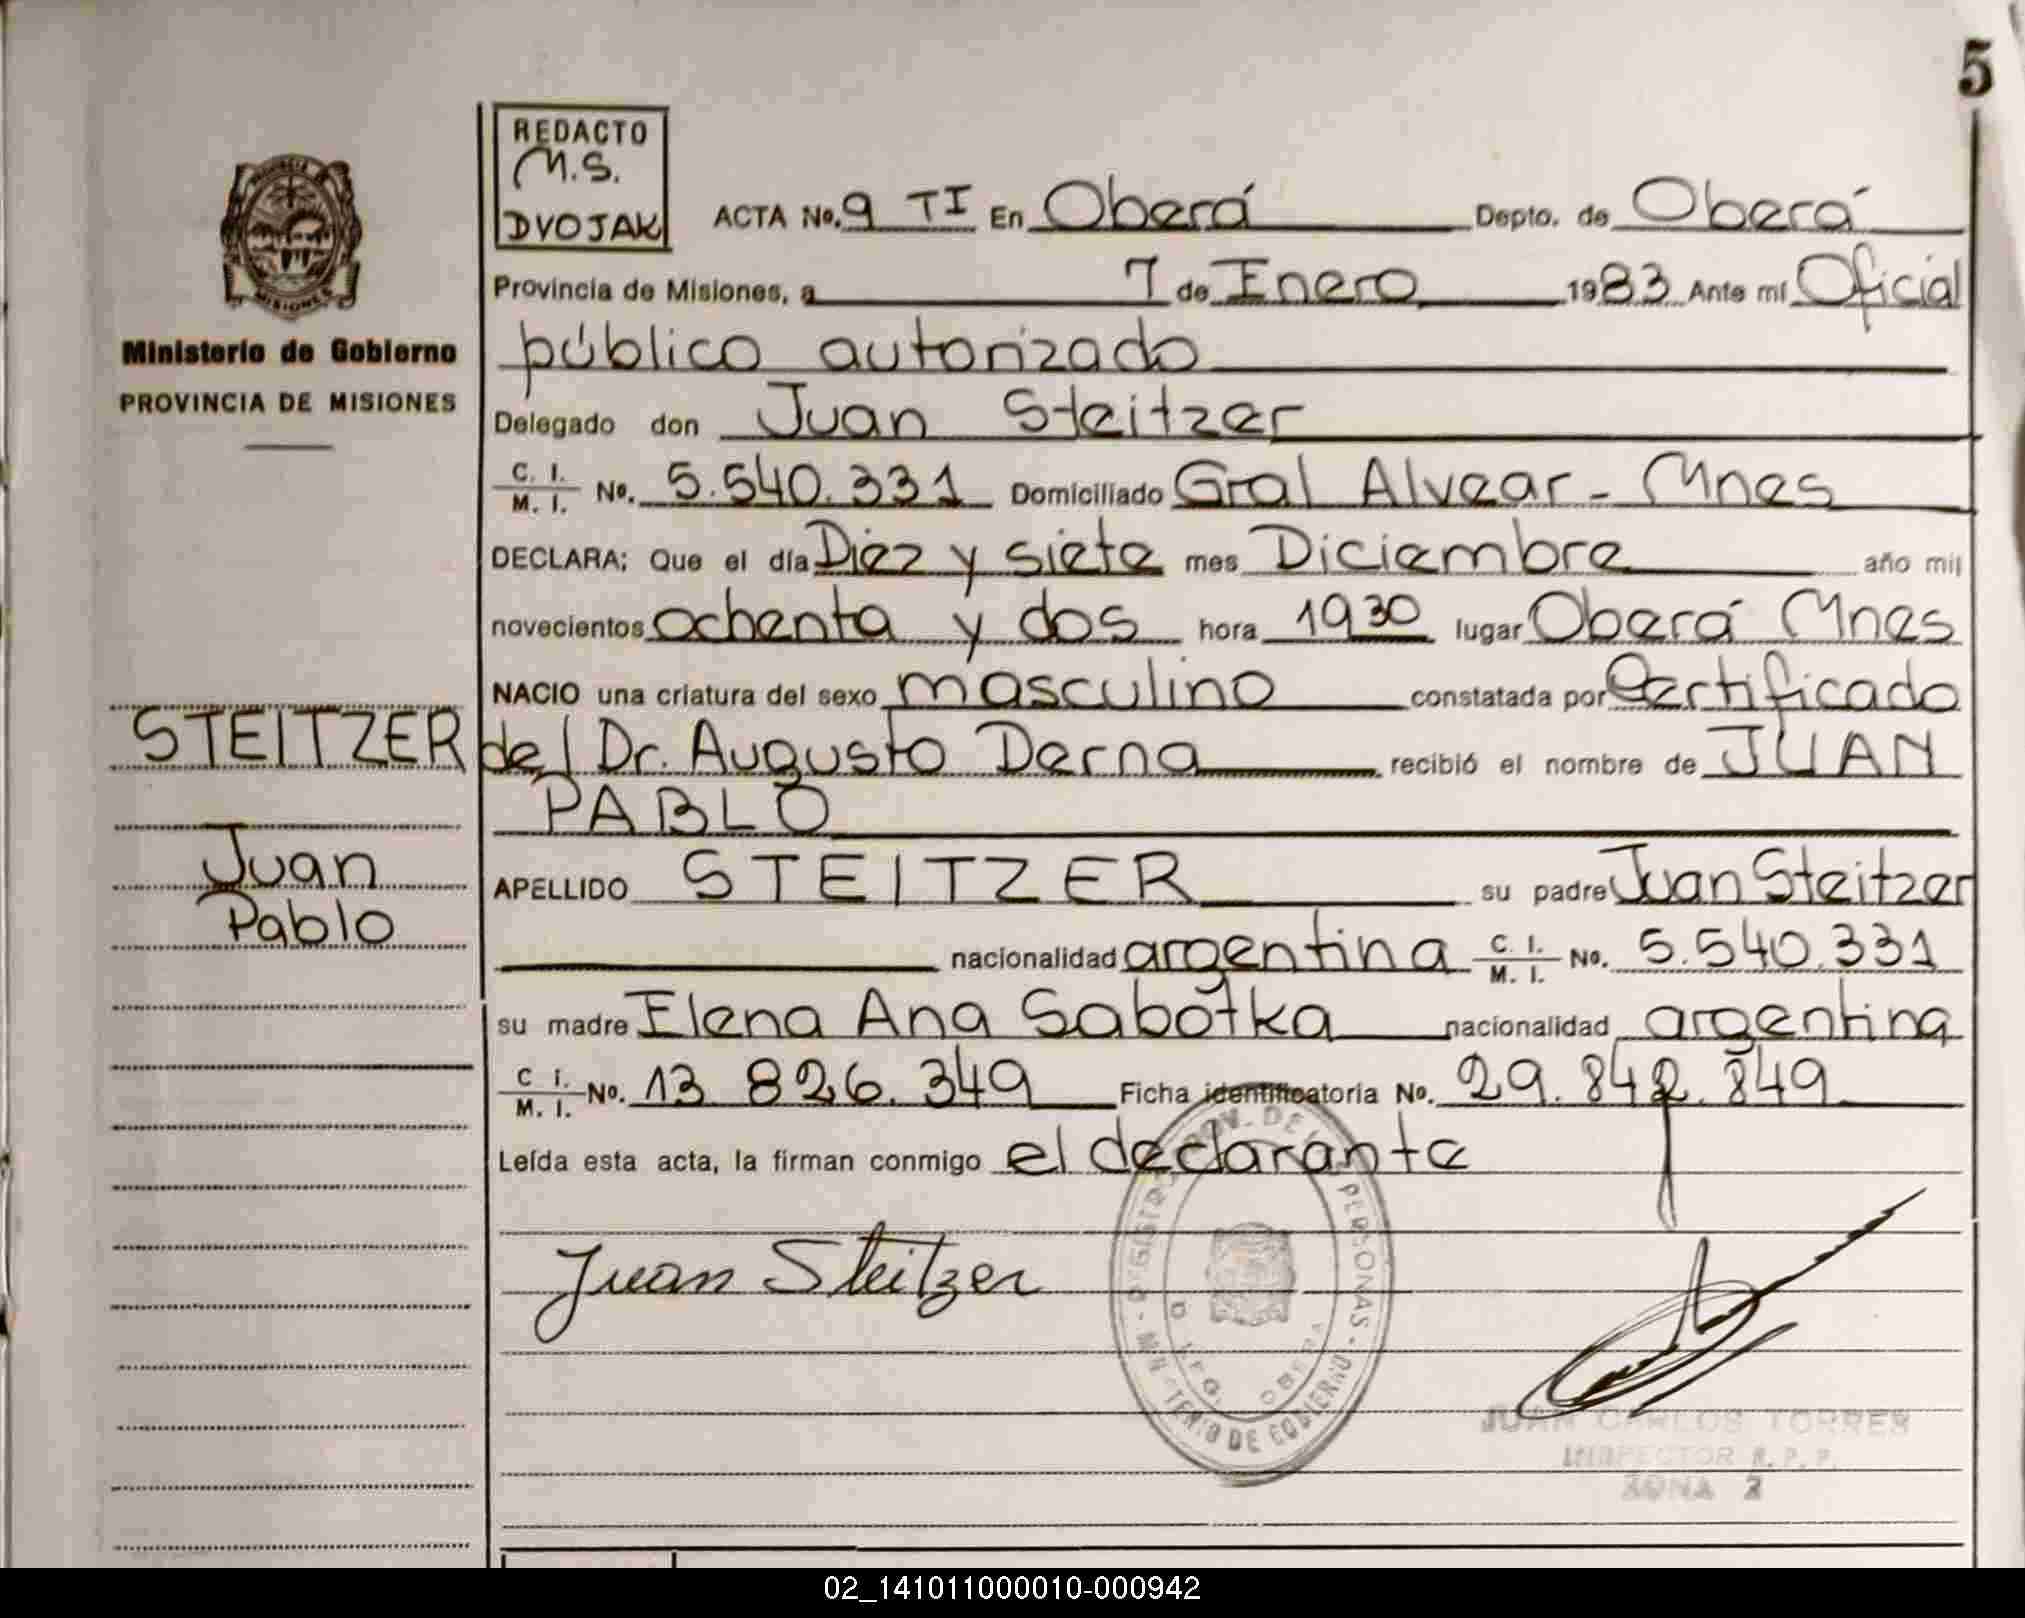 5
REDACTO
M.S.
DVOJAK
ACTA No. 9 TI En Oberá Depto. de Oberá
Provincia de Misiones, a 7 de Enero 1983 Ante mí Oficial
público autorizado
Delegado don Juan Steitzer
C. I. / M. I. No. 5.540.331 Domiciliado Gral Alvear - Mnes
DECLARA; Que el día Diez y siete mes Diciembre año mil
novecientos ochenta y dos hora 19 30 lugar Oberá Mnes
NACIO una criatura del sexo masculino constatada por Certificado
del Dr. Augusto Derna recibió el nombre de JUAN
PABLO
APELLIDO STEITZER su padre Juan Steitzer
nacionalidad argentina C. I. / M. I. No. 5.540.331
su madre Elena Ana Sabotka nacionalidad argentina
C I. / M. I. No. 13 826.349 Ficha identificatoria No. 29.842.849
Leída esta acta, la firman conmigo el declarante
Juan Steitzer
JUAN CARLOS TORRES
INSPECTOR R.P.P.
ZONA 2
PROVINCIA DE MISIONES
Ministerio de Gobierno
PROVINCIA DE MISIONES
STEITZER
Juan
Pablo
02_141011000010-000942